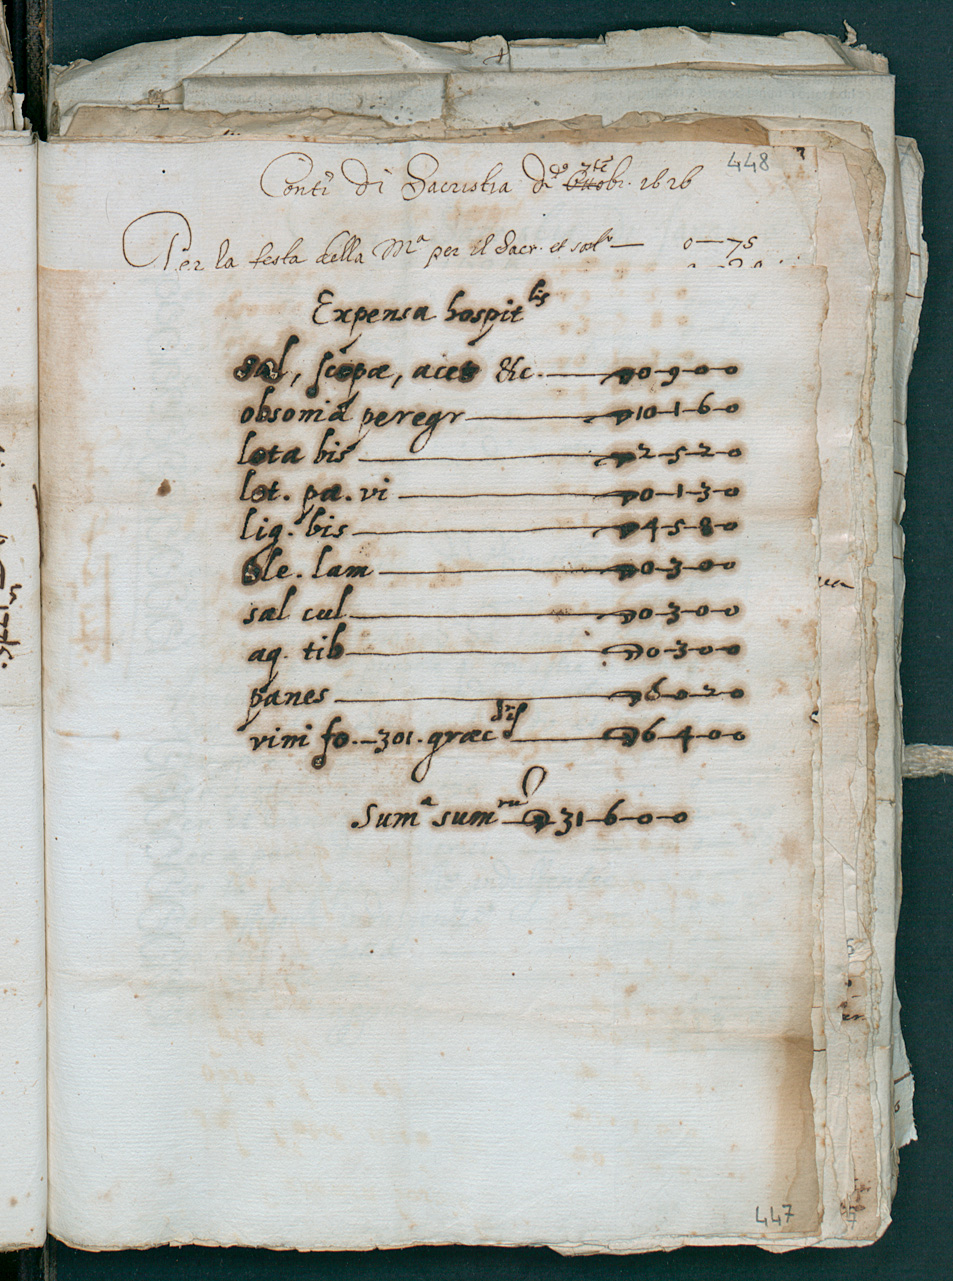 448
Conti di Sacristia di Xbr. 1616
Per la festa della Mª per il Sacr. et sol.— 0—75
Expensa hospit lis
Sal, scopæ, acet &c.—0-9-0-0
obsonia peregr—10-1-6-0
lota bis—2-5-2-0
lot. pæ. vi—0-1-3-0
lig. bis—4-5-8-0
Ole. lam—0-3-0-0
sal cul—0-3-0-0
aq. tib—0-3-0-0
panes—6-0-2-0
vini fo.—301. græc—6-4-0-0
Sumª sum ru—31-6-0-0
447